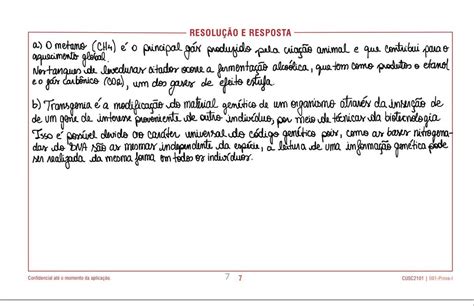 RESOLUÇÃO E RESPOSTA
a) O metano (CH4) é o principal gás produzido pela criação animal e que contribui para o
aquecimento global.
Nos tanques de leveduras citados ocorre a fermentação alcoólica, que tem como produtos o etanol
e o gás carbônico (CO2), um dos gases de efeito estufa.
b) Transgenia é a modificação do material genético de um organismo através da inserção de
de um gene de interesse proveniente de outro indivíduo, por meio de técnicas da biotecnologia
Isso é possível devido ao caráter universal do código genético pois, como as bases nitrogena-
das do DNA são as mesmas independente da espécie, a leitura de uma informação genética pode
ser realizada da mesma forma em todos os indivíduos.
Confidencial até o momento da aplicação.
7 7
CUSC2101 | 001-Prova-I